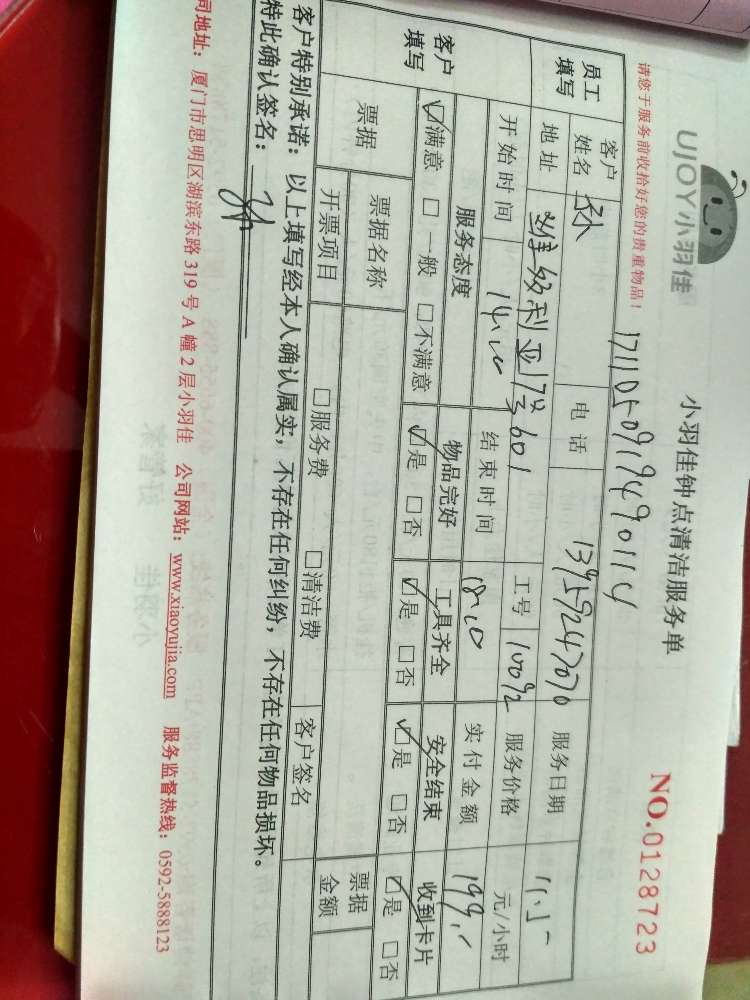 UJOY小羽佳
小羽佳钟点清洁服务单
NO.0128723
请您于服务前收拾好您的贵重物品！
171105091949011４
员工填写
客户姓名 孙 电话 13959247070 服务日期 11.5
地址 维多利亚17号601 工号 10092 服务价格 元/小时
开始时间 14.00 结束时间 18.00 实付金额 199.
客户填写
服务态度 物品完好 工具齐全 安全结束 收到卡片
☑满意 □一般 □不满意 ☑是 □否 ☑是 □否 ☑是 □否 ☑是 □否
票据 票据名称 票据金额
开票项目 □服务费 □清洁费 客户签名
客户特别承诺：以上填写经本人确认属实，不存在任何纠纷，不存在任何物品损坏。
特此确认签名：
司地址：厦门市思明区湖滨东路319号A幢2层小羽佳 公司网站：www.xiaoyujia.com 服务监督热线：0592-5888123